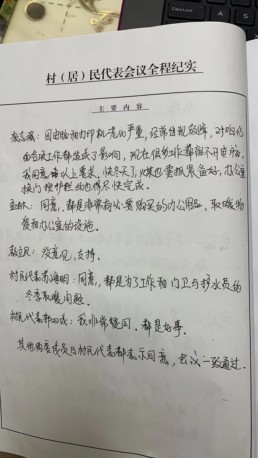 村（居）民代表会议全程纪实
主 要 内 容
志斌：因电脑和打印机老化严重，经常出现故障，对咱们
的各项工作都造成了影响，现在很多工作都离不开电脑，
我同意以上意见，快冬天了，煤也要抓紧备好，办公室
换门 也得尽快完成。
孟林：同意，都是非常有必要购买的办公用品，取暖物
资和办公室的设施。
民：没意见，支持。
村民代表 海明：同意，都是为了工作和门卫与护水员的
冬季取暖问题。
村民代表 田成：我非常赞同，都是好事。
其他两委成员及村民代表都表示同意，会议一致通过。